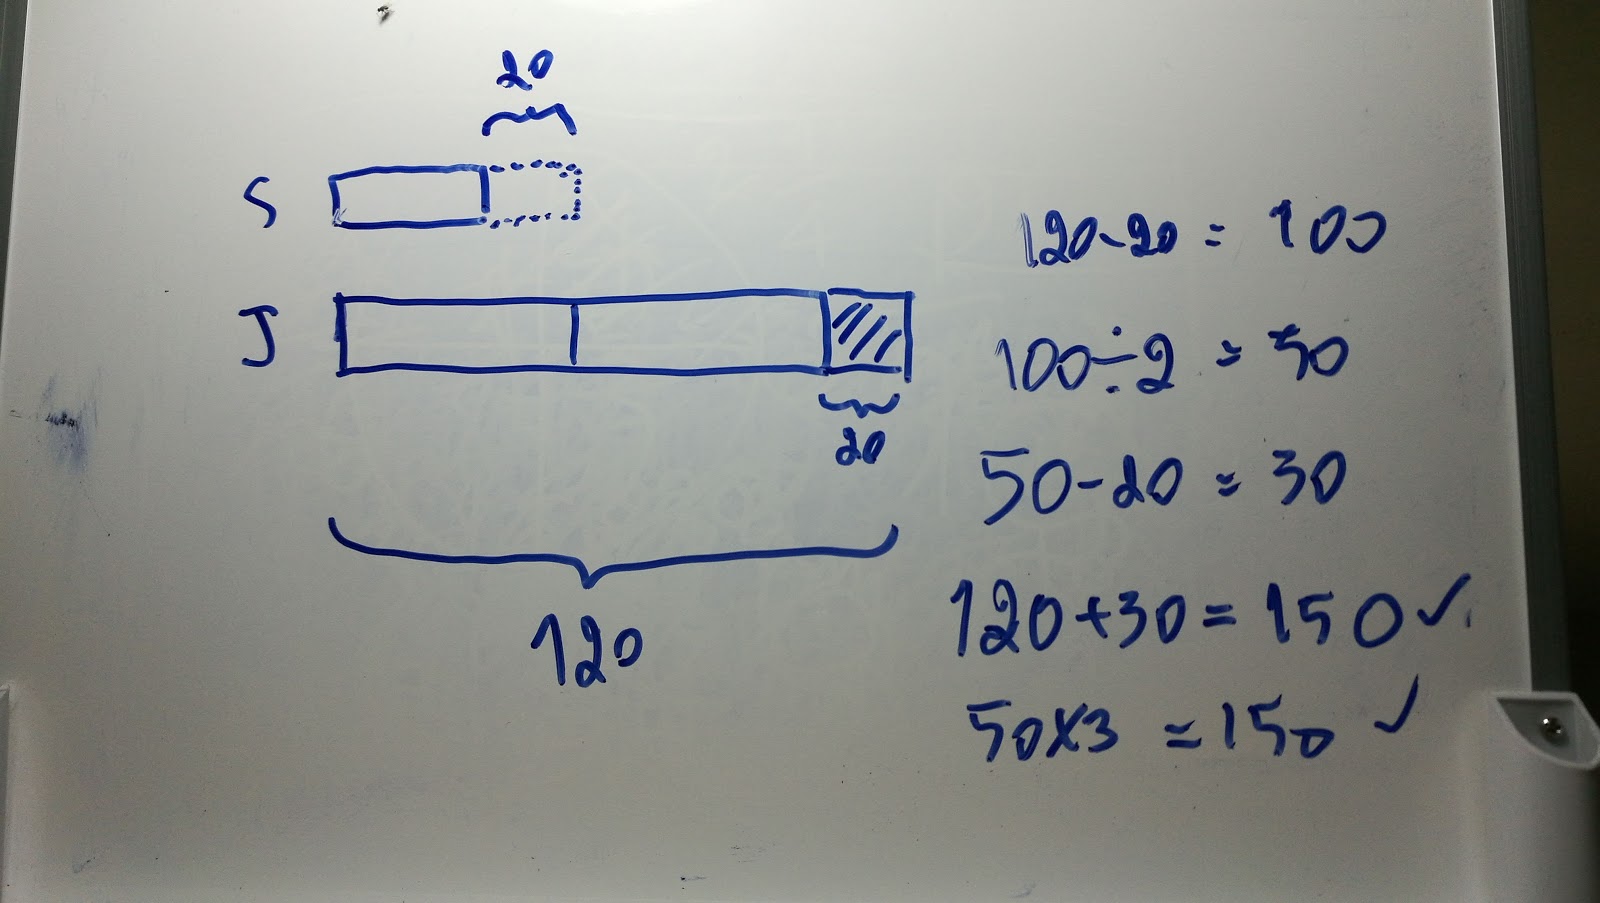 20
S
J
20
120
120-20 = 100
100÷2 = 50
50-20 = 30
120+30 = 150 ✓
50x3 = 150 ✓